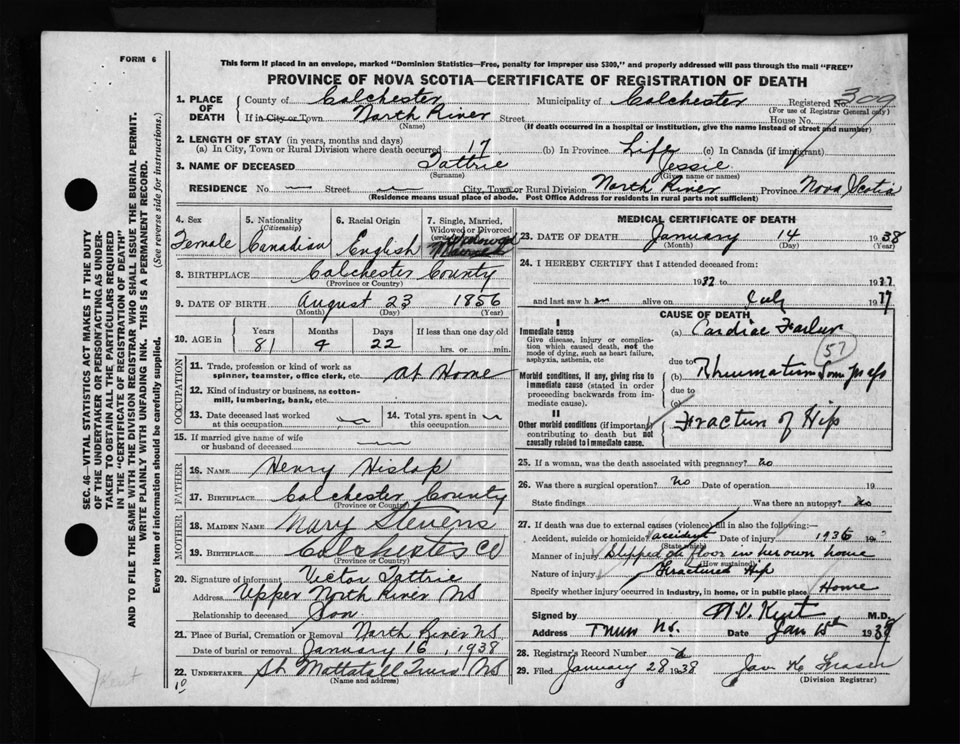 FORM 6
This form if placed in an envelope, marked "Dominion Statistics—Free, penalty for improper use $300," and properly addressed will pass through the mail "FREE"
PROVINCE OF NOVA SCOTIA—CERTIFICATE OF REGISTRATION OF DEATH
1. PLACE OF DEATH County of Colchester Municipality of Colchester Registered No. 309
(For use of Registrar General only)
If in City or Town North River Street House No.
(Name) (If death occurred in a hospital or institution, give the name instead of street and number)
2. LENGTH OF STAY (in years, months and days)
(a) In City, Town or Rural Division where death occurred 17 (b) In Province Life (c) In Canada (if immigrant)
3. NAME OF DECEASED Tattrie Jessie
(Surname) (Given name or names)
RESIDENCE No. — Street — City, Town or Rural Division North River Province Nova Scotia
(Residence means usual place of abode. Post Office Address for residents in rural parts not sufficient)
4. Sex Female
5. Nationality (Citizenship) Canadian
6. Racial Origin English
7. Single, Married, Widowed or Divorced Widowed
8. BIRTHPLACE Colchester County
(Province or Country)
9. DATE OF BIRTH August 23 1856
(Month) (Day) (Year)
10. AGE in Years Months Days If less than one day old
81 4 22 hrs. or min.
OCCUPATION
11. Trade, profession or kind of work as spinner, teamster, office clerk, etc. At Home
12. Kind of industry or business, as cotton-mill, lumbering, bank, etc.
13. Date deceased last worked at this occupation
14. Total yrs. spent in this occupation
15. If married give name of wife or husband of deceased
FATHER
16. NAME Henry Hislop
17. BIRTHPLACE Colchester County
(Province or Country)
MOTHER
18. MAIDEN NAME Mary Stevens
19. BIRTHPLACE Colchester Co
(Province or Country)
20. Signature of informant Victor Tattrie
Address Upper North River NS
Relationship to deceased Son
21. Place of Burial, Cremation or Removal North River NS.
Date of burial or removal January 16, 1938
22. UNDERTAKER Mattatall Truro NS
(Name and address)
10
MEDICAL CERTIFICATE OF DEATH
23. DATE OF DEATH January 14 1938
(Month) (Day) (Year)
24. I HEREBY CERTIFY that I attended deceased from:
and last saw h er alive on July 19
CAUSE OF DEATH
I
Immediate cause (a) Cardiac Failure
Give disease, injury or complication which caused death, not the mode of dying, such as heart failure, asphyxia, asthenia, etc
due to
Morbid conditions, if any, giving rise to immediate cause (stated in order proceeding backwards from immediate cause). (b) Rheumatism
due to
(c)
II
Other morbid conditions (if important) contributing to death but not causally related to immediate cause. Fracture of Hip
25. If a woman, was the death associated with pregnancy? No
26. Was there a surgical operation? No Date of operation 19
State findings Was there an autopsy? No
27. If death was due to external causes (violence) fill in also the following:—
Accident, suicide or homicide? accident Date of injury 1936 19
(State which)
Manner of injury Slipped on floor in her own home
(How sustained)
Nature of injury Fractured Hip
Specify whether injury occurred in industry, in home, or in public place Home
Signed by M.D.
Address Truro NS. Date Jan 15th 193
28. Registrar's Record Number 2
29. Filed January 28 1938 Fraser
(Division Registrar)
SEC. 46—VITAL STATISTICS ACT MAKES IT THE DUTY
OF THE UNDERTAKER OR PERSON ACTING AS UNDER-
TAKER TO OBTAIN ALL THE PARTICULARS REQUIRED
IN THE "CERTIFICATE OF REGISTRATION OF DEATH"
AND TO FILE THE SAME WITH THE DIVISION REGISTRAR WHO SHALL ISSUE THE BURIAL PERMIT.
WRITE PLAINLY WITH UNFADING INK. THIS IS A PERMANENT RECORD.
Every item of information should be carefully supplied. (See reverse side for instructions.)